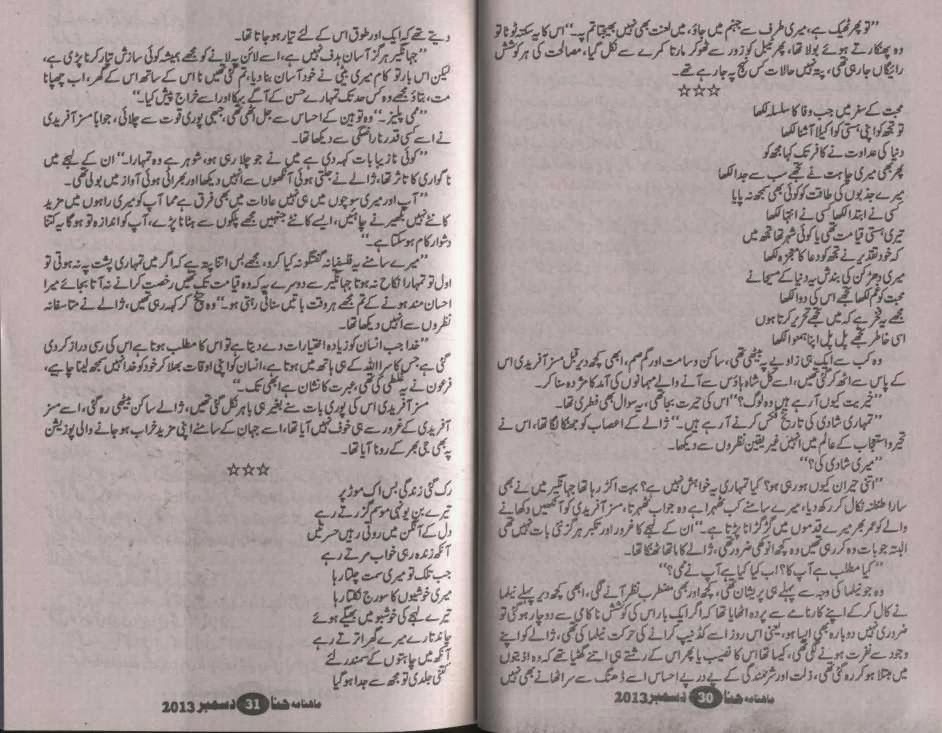 ”تو پھر ٹھیک ہے، میری طرف سے جہنم میں جاؤ، میں لعنت بھی نہیں بھیجتا تم پہ۔“ اس کا یہ سکتہ ٹوٹا تو
وہ پھنکارتے ہوئے بولا تھا، پھر ٹیبل کو زور سے ٹھوکر مارتا کمرے سے نکل گیا، مصالحت کی ہر کوشش
رائیگاں جا رہی تھی، پتہ نہیں حالات کس نہج پہ جا رہے تھے۔
☆☆☆
محبت کے سفر میں جب وفا کا سلسلہ لکھا
تو تجھ کو اپنی ہستی کو اکیلا آشنا لکھا
دنیا کی عداوت نے کافر تک کہا مجھ کو
پھر بھی میری چاہت نے تجھے سب سے جدا لکھا
میرے جذبوں کی طاقت کو کوئی بھی سمجھ نہ پایا
کسی نے ابتدا لکھا کسی نے انتہا لکھا
تیری ہستی قیامت تھی یا کوئی شہر تھا تجھ میں
کہ خود تقدیر نے تجھ کو دعا کا معجزہ لکھا
میری دھڑکن کی بندش پہ دنیا کے مسیحا نے
محبت کو غم لکھا تجھے اس کی دوا لکھا
مجھے یہ فخر ہے کہ میں تجھے تحریر کرتا ہوں
اسی خاطر تجھے پل پل اپنا ہمنوا لکھا
وہ کب سے ایک ہی زاویے پہ بیٹھی تھی، ساکن و سامت اور گم صم، ابھی کچھ دیر قبل مسز آفریدی اس
کے پاس سے اٹھ کر گئی تھیں، اسے کل شاہ ہاؤس سے آنے والے مہمانوں کی آمد کا مژدہ سنا کر۔
”خیریت کیوں آ رہے ہیں وہ لوگ؟“ اس کی حیرت بجا تھی، یہ سوال بھی فطری تھا۔
”تمہاری شادی کی تاریخ فکس کرنے آ رہے ہیں۔“ ژالے کے اعصاب کو جھٹکا لگا تھا، اس نے
تحیر و استعجاب کے عالم میں انہیں غیر یقین نظروں سے دیکھا۔
”میری شادی کی؟“
”اتنی حیران کیوں ہو رہی ہو؟ کیا تمہاری یہ خواہش نہیں ہے؟ بہت اکڑ رہا تھا جہانگیر میں نے بھی
سارا طنطنہ نکال کر رکھ دیا، میرے سامنے کب ٹھہرا ہے وہ جواب ٹھہرتا، مسز آفریدی کو آنکھیں دکھانے
والے کو عمر بھر میرے قدموں میں گڑگڑانا پڑتا ہے۔“ ان کے لہجے کا غرور اور تکبر ہرگز نئی بات نہیں تھی
البتہ جو بات وہ کر رہی تھیں وہ کچھ انوکھی ضرور تھی، ژالے کا ماتھا ٹھنکا تھا۔
”کیا مطلب ہے آپ کا؟ اب کیا کیا ہے آپ نے ممی؟“
وہ جو نیلما کی وجہ سے پہلے ہی پریشان تھی، کچھ اور بھی مضطرب نظر آنے لگی، ابھی کچھ دیر پہلے نیلما
نے کال کر کے اپنے کارنامے سے پردہ اٹھایا تھا کہ اگر ایک بار اس کی کوشش ناکامی سے دوچار ہو گئی تو
ضروری نہیں دوبارہ بھی ایسا ہو، یعنی اس روز اسے کڈنیپ کرانے کی حرکت نیلما کی تھی، ژالے کو اپنے
وجود سے نفرت ہونے لگی تھی، کیسا تھا اس کا نصیب یا پھر اس کے رشتے ہی اتنے گھٹیا تھے کہ وہ اذیتوں
میں مبتلا ہو کر رہ گئی تھی، ذلت اور شرمندگی کے پے در پے احساس اسے ڈھنگ سے سر اٹھانے بھی نہیں
ماہنامہ حنا 30 دسمبر 2013
دیتے تھے کہ ایک اور طوق اس کے لئے تیار ہو جاتا تھا۔
”جہانگیر ہرگز آسان ہدف نہیں ہے، اسے لائن پہ لانے کو مجھے ہمیشہ کوئی سازش تیار کرنا پڑی ہے،
لیکن اس بار تو کام میری بیٹی نے خود آسان بنا دیا، تم گئی تھیں نا اس کے ساتھ اس کے گھر، اب چھپانا
مت، بتاؤ مجھے وہ کس حد تک تمہارے حسن کے آگے بہکا اور اسے خراج پیش کیا۔“
”ممی پلیز۔“ وہ توہین کے احساس سے جل اٹھی تھی، جبھی پوری قوت سے چلائی، جواباً مسز آفریدی
نے اسے کسی قدر ناراضگی سے دیکھا تھا۔
”کوئی نازیبا بات کہہ دی ہے میں نے جو چلا رہی ہو، شوہر ہے وہ تمہارا۔“ ان کے لہجے میں
ناگواری کا تاثر تھا، ژالے نے جلتی ہوئی آنکھوں سے انہیں دیکھا اور بھرائی ہوئی آواز میں بولی تھی۔
”آپ اور میری سوچوں میں ہی نہیں عادات میں بھی فرق ہے مما آپ کو میری راہوں میں مزید
کانٹے نہیں بکھیرنے چاہئیں، ایسے کانٹے جنہیں مجھے پلکوں سے ہٹانا پڑے، آپ کو اندازہ تو ہو گا یہ کتنا
دشوار کام ہو سکتا ہے۔“
”میرے سامنے یہ فلسفیانہ گفتگو نہ کیا کرو، مجھے بس اتنا پتہ ہے کہ اگر میں تمہاری پشت پہ نہ ہوتی تو
اول تو تمہارا نکاح نہ ہوتا جہانگیر سے دوسرے یہ کہ وہ قیامت تک تمہیں رخصت کرانے نہ آتا بجائے میرا
احسان مند ہونے کے تم مجھے ہر وقت باتیں سناتی رہتی ہو۔“ وہ چیخ کر کہہ رہی تھیں، ژالے نے متاسفانہ
نظروں سے انہیں دیکھا تھا۔
”خدا جب انسان کو زیادہ اختیارات دے دیتا ہے تو اس کا مطلب ہوتا ہے اس کی رسی دراز کر دی
گئی ہے جس کا سرا اللہ کے ہی ہاتھ میں ہوتا ہے، انسان کو اپنی اوقات بھلا کر خود کو خدا نہیں سمجھ لینا چاہیے،
فرعون نے یہ غلطی کی تھی، عبرت کا نشان ہے ابھی تک۔“
مسز آفریدی اس کی پوری بات سنے بغیر ہی باہر نکل گئی تھیں، ژالے ساکن بیٹھی رہ گئی، اسے مسز
آفریدی کے غرور سے ہی خوف نہیں آیا تھا، اسے جہان کے سامنے اپنی مزید خراب ہو جانے والی پوزیشن
پہ بھی جی بھر کے رونا آیا تھا۔
☆☆☆
رک گئی زندگی بس اک موڑ پر
تیرے بن یونہی موسم گزرتے رہے
دل کے آنگن میں روتی رہیں حسرتیں
آنکھ زندہ رہی خواب مرتے رہے
جب تلک تو میری سمت چلتا رہا
میری خوشیوں کا سورج نکلتا رہا
تیرے لہجے کی خوشبو میں بھیگے ہوئے
چاند تارے میرے گھر اترتے رہے
آنکھ میں چاہتوں کے سمندر لئے
کتنی جلدی تو مجھ سے جدا ہو گیا
ماہنامہ حنا 31 دسمبر 2013